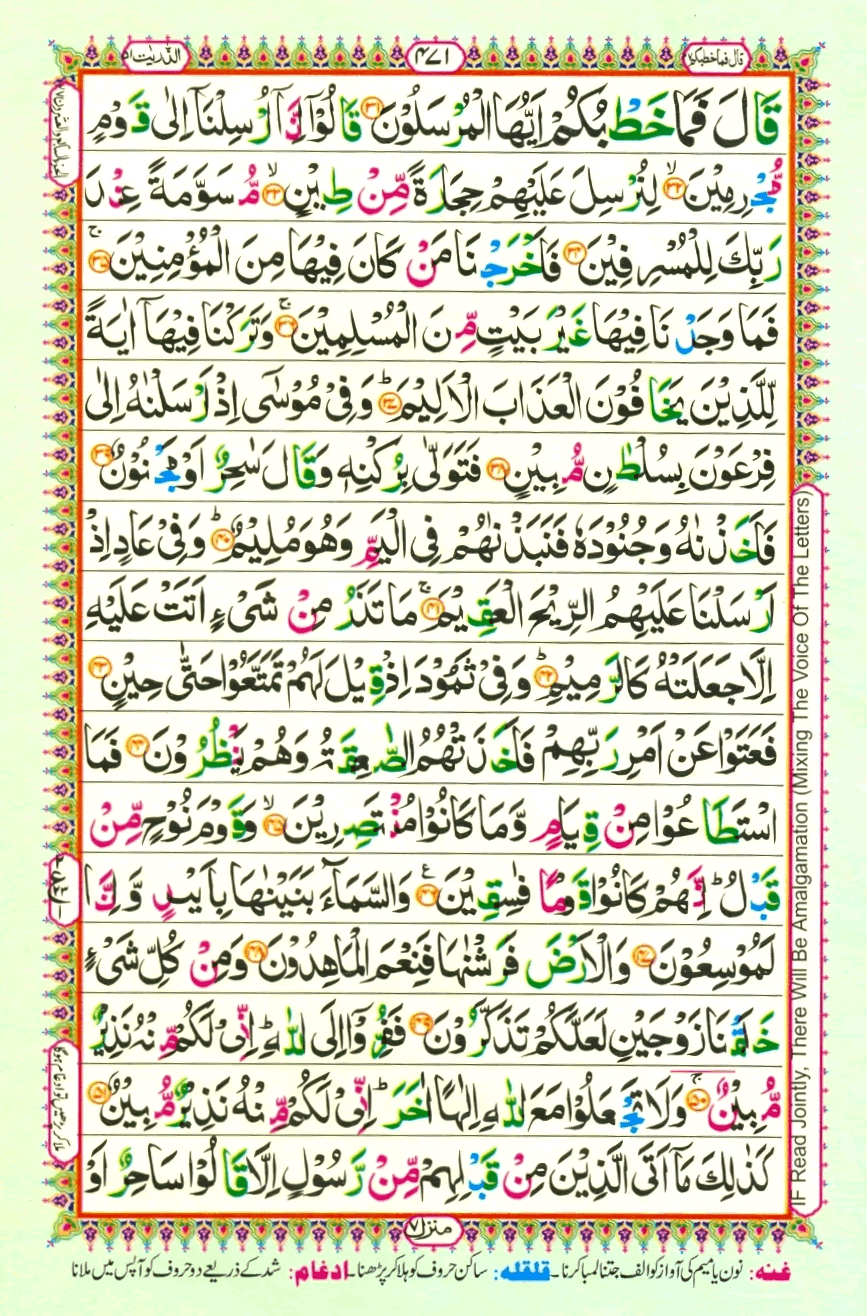 قال فما خطبكم ٢٧
٤٧١
الذّٰریٰت ٥١
قَالَ فَمَا خَطْبُكُمْ اَیُّهَا الْمُرْسَلُوْنَ ٣١ قَالُوْۤا اِنَّاۤ اُرْسِلْنَاۤ اِلٰی قَوْمٍ
مُّجْرِمِیْنَ ٣٢ۙ لِنُرْسِلَ عَلَیْهِمْ حِجَارَةً مِّنْ طِیْنٍ ٣٣ۙ مُّسَوَّمَةً عِنْدَ
رَبِّكَ لِلْمُسْرِفِیْنَ ٣٤ فَاَخْرَجْنَا مَنْ كَانَ فِیْهَا مِنَ الْمُؤْمِنِیْنَ ٣٥ۚ
فَمَا وَجَدْنَا فِیْهَا غَیْرَ بَیْتٍ مِّنَ الْمُسْلِمِیْنَ ٣٦ۚ وَتَرَكْنَا فِیْهَاۤ اٰیَةً
لِّلَّذِیْنَ یَخَافُوْنَ الْعَذَابَ الْاَلِیْمَ ٣٧ؕ وَفِیْ مُوْسٰۤی اِذْ اَرْسَلْنٰهُ اِلٰی
فِرْعَوْنَ بِسُلْطٰنٍ مُّبِیْنٍ ٣٨ فَتَوَلّٰی بِرُكْنِهٖ وَقَالَ سٰحِرٌ اَوْ مَجْنُوْنٌ ٣٩
فَاَخَذْنٰهُ وَجُنُوْدَهٗ فَنَبَذْنٰهُمْ فِی الْیَمِّ وَهُوَ مُلِیْمٌ ٤٠ؕ وَفِیْ عَادٍ اِذْ
اَرْسَلْنَا عَلَیْهِمُ الرِّیْحَ الْعَقِیْمَ ٤١ۚ مَا تَذَرُ مِنْ شَیْءٍ اَتَتْ عَلَیْهِ
اِلَّا جَعَلَتْهُ كَالرَّمِیْمِ ٤٢ؕ وَفِیْ ثَمُوْدَ اِذْ قِیْلَ لَهُمْ تَمَتَّعُوْا حَتّٰی حِیْنٍ ٤٣
فَعَتَوْا عَنْ اَمْرِ رَبِّهِمْ فَاَخَذَتْهُمُ الصّٰعِقَةُ وَهُمْ یَنْظُرُوْنَ ٤٤ فَمَا
اسْتَطَاعُوْا مِنْ قِیَامٍ وَّمَا كَانُوْا مُنْتَصِرِیْنَ ٤٥ۙ وَقَوْمَ نُوْحٍ مِّنْ
قَبْلُ ؕ اِنَّهُمْ كَانُوْا قَوْمًا فٰسِقِیْنَ ٤٦ۧ وَالسَّمَآءَ بَنَیْنٰهَا بِاَیْىدٍ وَّاِنَّا
لَمُوْسِعُوْنَ ٤٧ وَالْاَرْضَ فَرَشْنٰهَا فَنِعْمَ الْمَاهِدُوْنَ ٤٨ وَمِنْ كُلِّ شَیْءٍ
خَلَقْنَا زَوْجَیْنِ لَعَلَّكُمْ تَذَكَّرُوْنَ ٤٩ فَفِرُّوْۤا اِلَی اللّٰهِ ؕ اِنِّیْ لَكُمْ مِّنْهُ نَذِیْرٌ
مُّبِیْنٌ ٥٠ۚ وَلَا تَجْعَلُوْا مَعَ اللّٰهِ اِلٰهًا اٰخَرَ ؕ اِنِّیْ لَكُمْ مِّنْهُ نَذِیْرٌ مُّبِیْنٌ ٥١ۚ
كَذٰلِكَ مَاۤ اَتَی الَّذِیْنَ مِنْ قَبْلِهِمْ مِّنْ رَّسُوْلٍ اِلَّا قَالُوْا سَاحِرٌ اَوْ
IF Read Jointly, There Will Be Amalgamation (Mixing The Voice Of The Letters)
ملا کر پڑھیں تو ادغام ہوگا
منزل ٧
غنہ: نون یا میم کی آواز کو الف جتنا لمبا کرنا۔ قلقلہ: ساکن حروف کو ہلا کر پڑھنا۔ ادغام: شد کے ذریعے دو حروف کو آپس میں ملانا